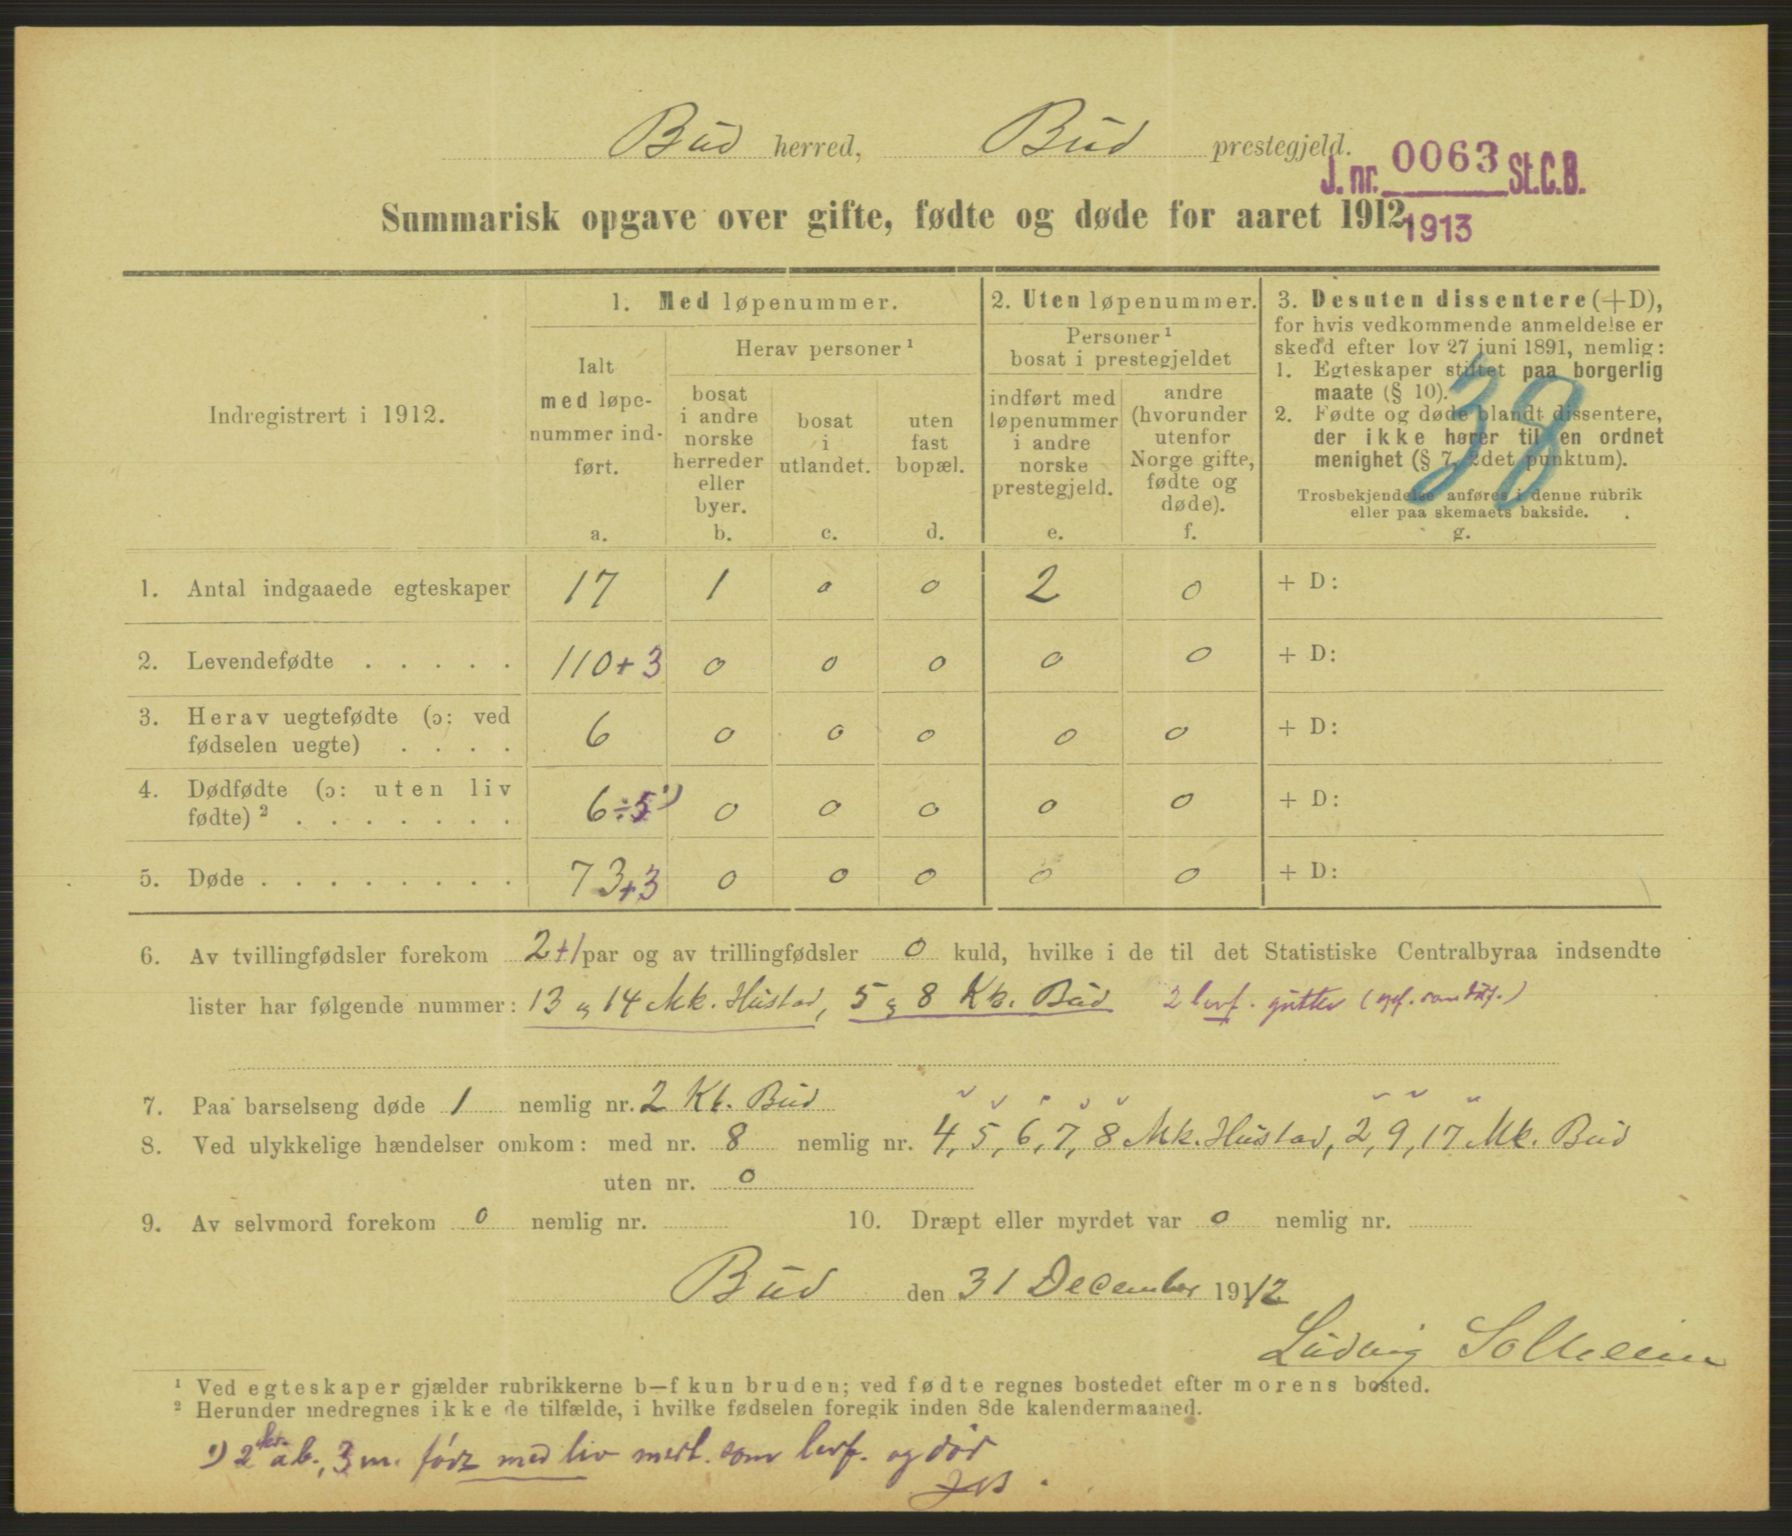 Bud herred, Bud prestegjeld.
J. nr. 0063 St.C.B.
1913
Summarisk opgave over gifte, fødte og døde for aaret 1912.
Indregistrert i 1912.
1. Med løpenummer.
Ialt med løpenummer indført.
a.
Herav personer ¹
bosat i andre norske herreder eller byer.
b.
bosat i utlandet.
c.
uten fast bopæl.
d.
2. Uten løpenummer.
Personer ¹ bosat i prestegjeldet
indført med løpenummer i andre norske prestegjeld.
e.
andre (hvorunder utenfor Norge gifte, fødte og døde).
f.
3. Desuten dissentere (+D),
for hvis vedkommende anmeldelse er
skedd efter lov 27 juni 1891, nemlig:
1. Egteskaper stiftet paa borgerlig
maate (§ 10).
2. Fødte og døde blandt dissentere,
der ikke hører til en ordnet
menighet (§ 7, 2det punktum).
Trosbekjendelse anføres i denne rubrik
eller paa skemaets bakside.
g.
38
1. Antal indgaaede egteskaper 17 1 0 0 2 0 + D:
2. Levendefødte . . . . . 110 + 3 0 0 0 0 0 + D:
3. Herav uegtefødte (ɔ: ved
fødselen uegte) . . . . 6 0 0 0 0 0 + D:
4. Dødfødte (ɔ: uten liv
fødte) ² . . . . . . . 6 ÷ 5 ¹) 0 0 0 0 0 + D:
5. Døde . . . . . . . . 73 + 3 0 0 0 0 0 + D:
6. Av tvillingfødsler forekom 2+1 par og av trillingfødsler 0 kuld, hvilke i de til det Statistiske Centralbyraa indsendte
lister har følgende nummer: 13 & 14 Mk. Hustad, 5 & 8 Kk. Bud 2 levf. gutter
7. Paa barselseng døde 1 nemlig nr. 2 Kk. Bud
8. Ved ulykkelige hændelser omkom: med nr. 8 nemlig nr. 4, 5, 6, 7, 8 Mk. Hustad, 2, 9, 17 Mk. Bud
uten nr. 0
9. Av selvmord forekom 0 nemlig nr. 10. Dræpt eller myrdet var 0 nemlig nr.
Bud den 31 December 1912
Ludvig Solheim
¹ Ved egteskaper gjælder rubrikkerne b—f kun bruden; ved fødte regnes bostedet efter morens bosted.
² Herunder medregnes ikke de tilfælde, i hvilke fødselen foregik inden 8de kalendermaaned.
¹) 2 b., 3 m. født med liv medt. som levf. og død